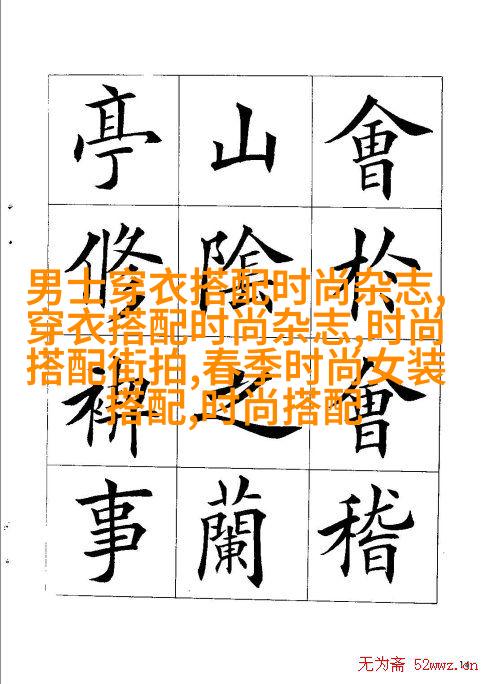 會於會稽
山陰之蘭
亭脩禊事
男士穿衣搭配时尚杂志,
穿衣搭配时尚杂志,时尚
搭配街拍,春季时尚女装
搭配,时尚搭配
无为斋 52wwz.cn